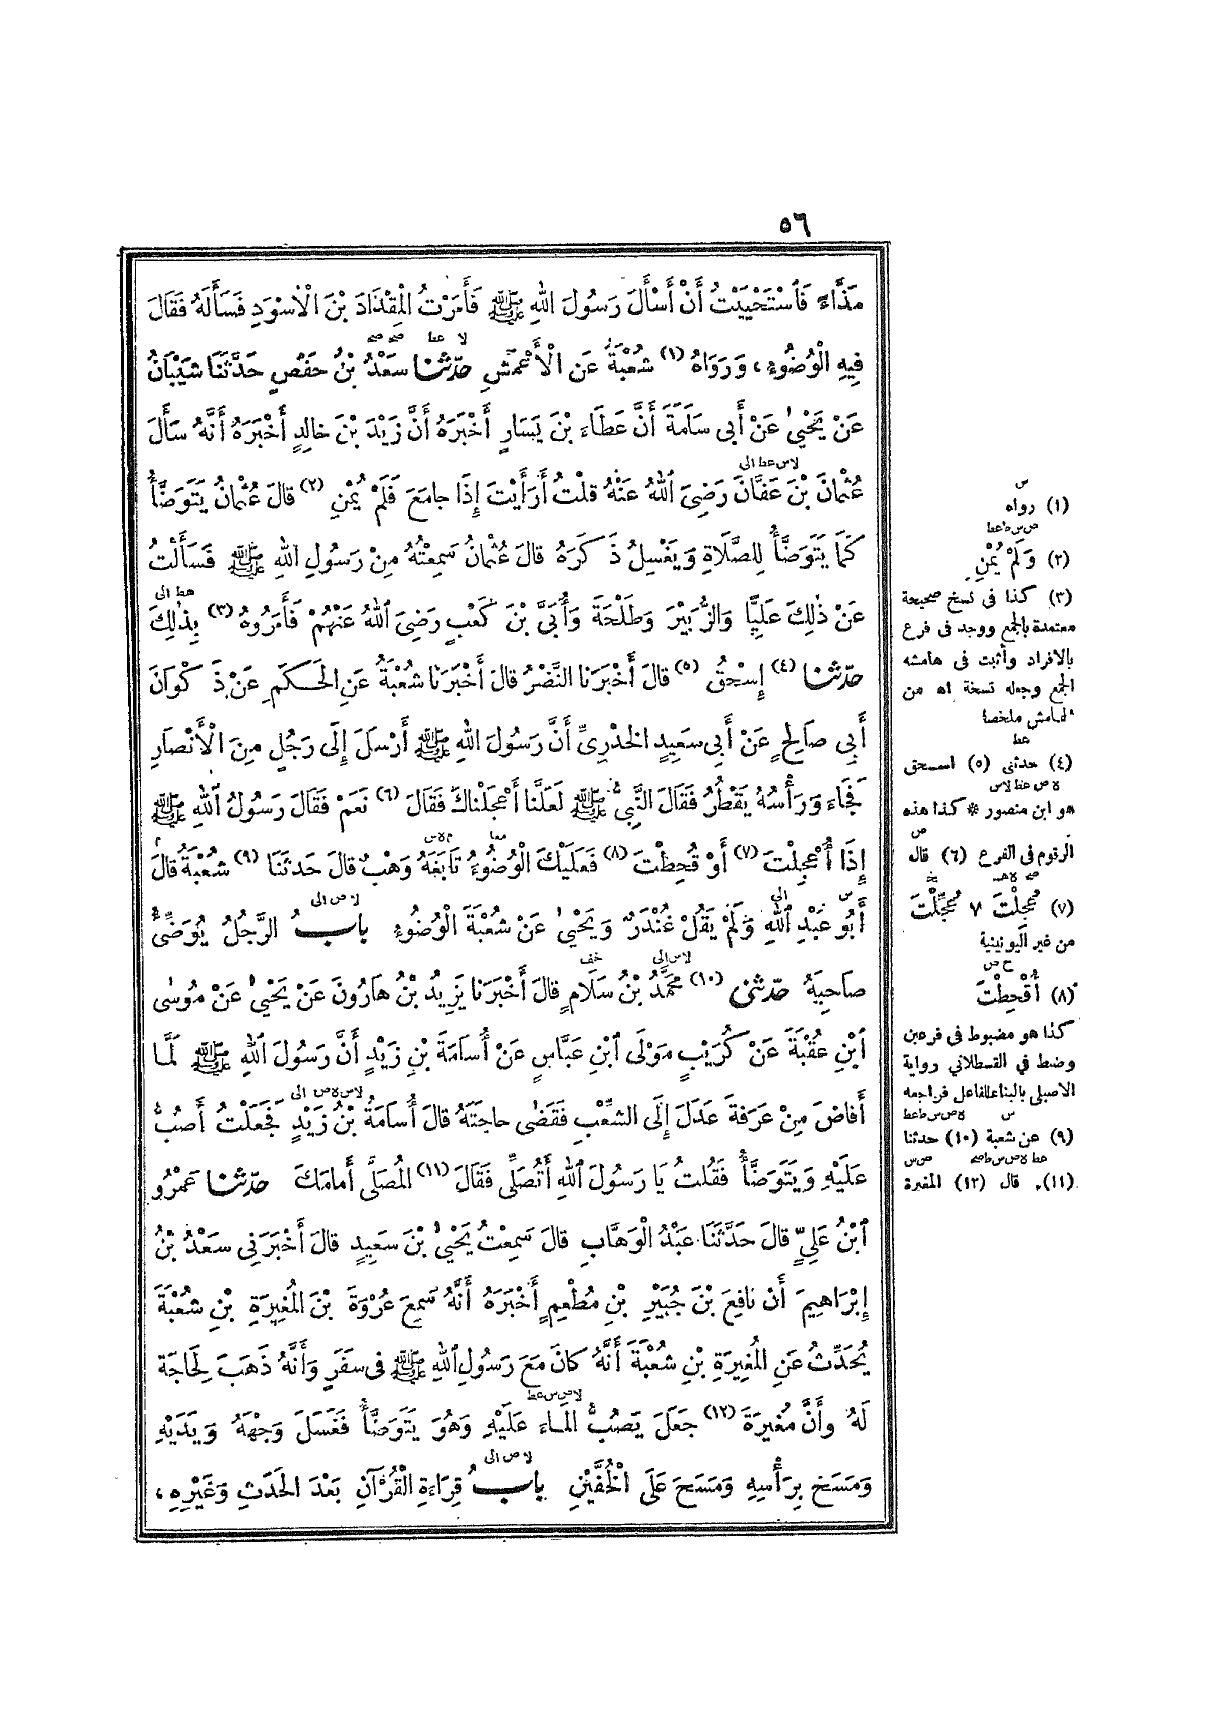 ٥٦
مَذَّاءً فَاسْتَحْيَيْتُ أَنْ أَسْأَلَ رَسُولَ اللهِ ﷺ فَأَمَرْتُ الْمِقْدَادَ بْنَ الْأَسْوَدِ فَسَأَلَهُ فَقَالَ
فِيهِ الْوُضُوءُ، وَرَوَاهُ (١) شُعْبَةُ عَنِ الْأَعْمَشِ حَدَّثَنَا سَعْدُ بْنُ حَفْصٍ حَدَّثَنَا شَيْبَانُ
عَنْ يَحْيَىٰ عَنْ أَبِي سَلَمَةَ أَنَّ عَطَاءَ بْنَ يَسَارٍ أَخْبَرَهُ أَنَّ زَيْدَ بْنَ خَالِدٍ أَخْبَرَهُ أَنَّهُ سَأَلَ
عُثْمَانَ بْنَ عَفَّانَ رَضِيَ اللهُ عَنْهُ قُلْتُ أَرَأَيْتَ إِذَا جَامَعَ فَلَمْ يُمْنِ (٢) قَالَ عُثْمَانُ يَتَوَضَّأُ
كَمَا يَتَوَضَّأُ لِلصَّلَاةِ وَيَغْسِلُ ذَكَرَهُ قَالَ عُثْمَانُ سَمِعْتُهُ مِنْ رَسُولِ اللهِ ﷺ فَسَأَلْتُ
عَنْ ذٰلِكَ عَلِيًّا وَالزُّبَيْرَ وَطَلْحَةَ وَأُبَيَّ بْنَ كَعْبٍ رَضِيَ اللهُ عَنْهُمْ فَأَمَرُوهُ (٣) بِذٰلِكَ
حَدَّثَنَا (٤) إِسْحٰقُ (٥) قَالَ أَخْبَرَنَا النَّضْرُ قَالَ أَخْبَرَنَا شُعْبَةُ عَنِ الْحَكَمِ عَنْ ذَكْوَانَ
أَبِي صَالِحٍ عَنْ أَبِي سَعِيدٍ الْخُدْرِيِّ أَنَّ رَسُولَ اللهِ ﷺ أَرْسَلَ إِلَى رَجُلٍ مِنَ الْأَنْصَارِ
فَجَاءَ وَرَأْسُهُ يَقْطُرُ فَقَالَ النَّبِيُّ ﷺ لَعَلَّنَا أَعْجَلْنَاكَ فَقَالَ (٦) نَعَمْ فَقَالَ رَسُولُ اللهِ ﷺ
إِذَا أُعْجِلْتَ (٧) أَوْ قُحِطْتَ (٨) فَعَلَيْكَ الْوُضُوءُ تَابَعَهُ وَهْبٌ قَالَ حَدَّثَنَا (٩) شُعْبَةُ قَالَ
أَبُو عَبْدِ اللهِ وَلَمْ يَقُلْ غُنْدَرٌ وَيَحْيَىٰ عَنْ شُعْبَةَ الْوُضُوءُ بَابُ الرَّجُلُ يُوَضِّئُ
صَاحِبَهُ حَدَّثَنِي (١٠) مُحَمَّدُ بْنُ سَلَامٍ قَالَ أَخْبَرَنَا يَزِيدُ بْنُ هَارُونَ عَنْ يَحْيَىٰ عَنْ مُوسَى
ابْنِ عُقْبَةَ عَنْ كُرَيْبٍ مَوْلَى ابْنِ عَبَّاسٍ عَنْ أُسَامَةَ بْنِ زَيْدٍ أَنَّ رَسُولَ اللهِ ﷺ لَمَّا
أَفَاضَ مِنْ عَرَفَةَ عَدَلَ إِلَى الشِّعْبِ فَقَضَى حَاجَتَهُ قَالَ أُسَامَةُ بْنُ زَيْدٍ فَجَعَلْتُ أَصُبُّ
عَلَيْهِ وَيَتَوَضَّأُ فَقُلْتُ يَا رَسُولَ اللهِ أَتُصَلِّي فَقَالَ (١١) الْمُصَلَّى أَمَامَكَ حَدَّثَنَا عَمْرُو
ابْنُ عَلِيٍّ قَالَ حَدَّثَنَا عَبْدُ الْوَهَّابِ قَالَ سَمِعْتُ يَحْيَىٰ بْنَ سَعِيدٍ قَالَ أَخْبَرَنِي سَعْدُ بْنُ
إِبْرَاهِيمَ أَنَّ نَافِعَ بْنَ جُبَيْرِ بْنِ مُطْعِمٍ أَخْبَرَهُ أَنَّهُ سَمِعَ عُرْوَةَ بْنَ الْمُغِيرَةِ بْنِ شُعْبَةَ
يُحَدِّثُ عَنِ الْمُغِيرَةِ بْنِ شُعْبَةَ أَنَّهُ كَانَ مَعَ رَسُولِ اللهِ ﷺ فِي سَفَرٍ وَأَنَّهُ ذَهَبَ لِحَاجَةٍ
لَهُ وَأَنَّ مُغِيرَةَ (١٢) جَعَلَ يَصُبُّ الْمَاءَ عَلَيْهِ وَهُوَ يَتَوَضَّأُ فَغَسَلَ وَجْهَهُ وَيَدَيْهِ
وَمَسَحَ بِرَأْسِهِ وَمَسَحَ عَلَى الْخُفَّيْنِ بَابُ قِرَاءَةِ الْقُرْآنِ بَعْدَ الْحَدَثِ وَغَيْرِهِ،
(١) رواه
(٢) وَلَمْ يُمْنِ
(٣) كذا فى نسخ صحيحة
معتمدة بالجمع ووجد فى فرع
بالافراد وأثبت فى هامشه
الجمع وجعله نسخة اه من
الهامش ملخصا
(٤) حدثنى (٥) اسحق
هو ابن منصور * كذا هذه
الرقوم فى الفرع (٦) قال
(٧) عُجِلْتَ ٧ عُجِّلْتَ
من غير اليونينية
(٨) أُقْحِطْتَ
كذا هو مضبوط فى فرعين
وضبط في القسطلاني رواية
الاصيلى بالبناء للفاعل فراجعه
(٩) عن شعبة (١٠) حدثنا
(١١). قال (١٢) المغيرة